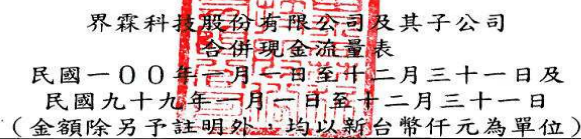 界霖科技股份有限公司及其子公司
合併現金流量表
民國一００年一月一日至十二月三十一日及
民國九十九年一月一日至十二月三十一日
（金額除另予註明外，均以新台幣仟元為單位）